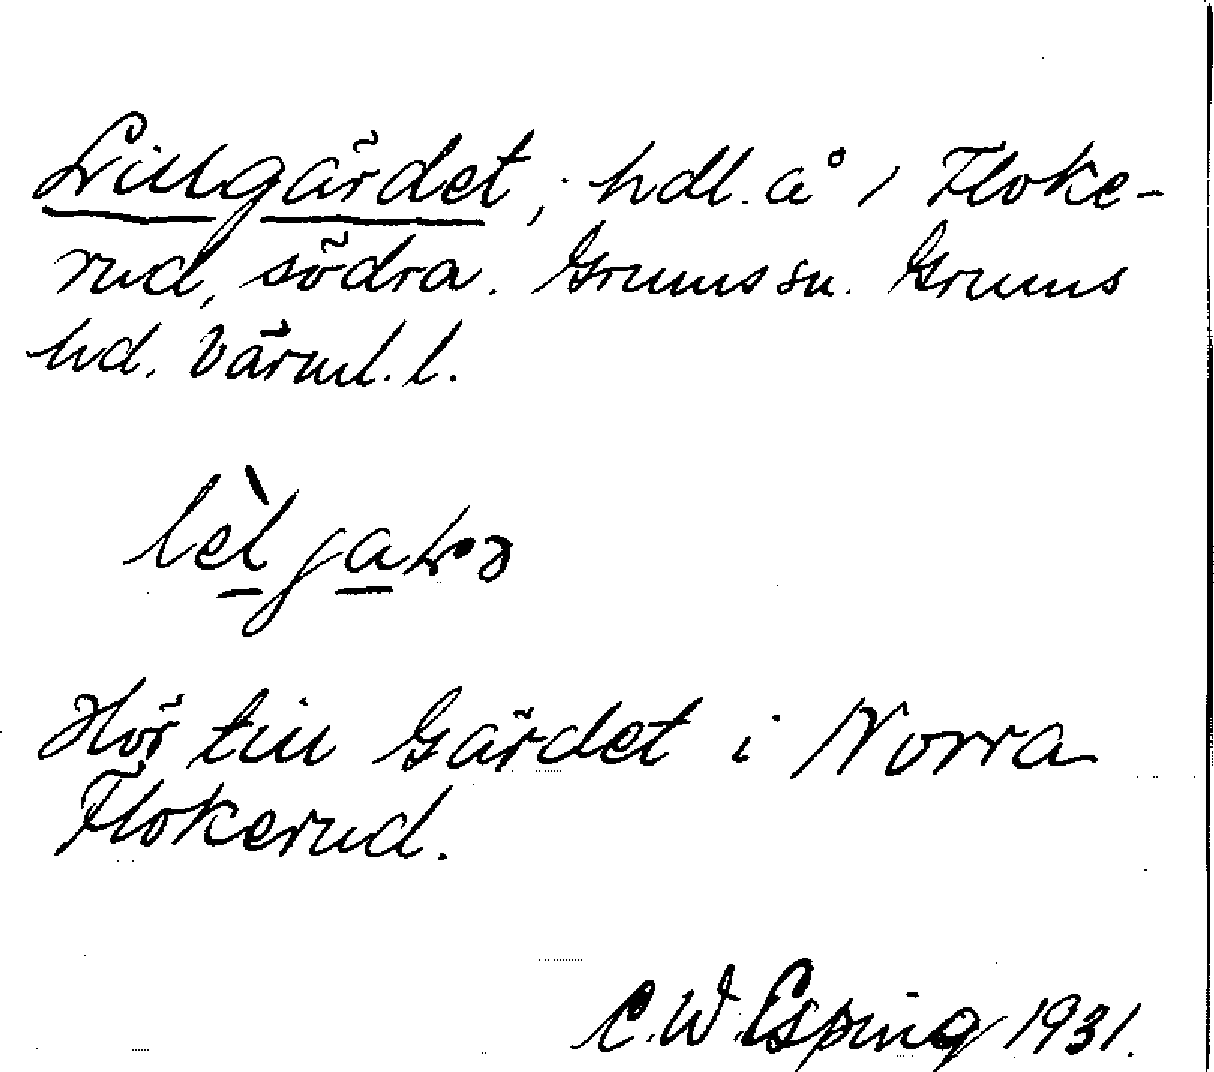 Lillgärdet, hdl. å i Floke-
rud, södra. Grums sn. Grums
hd. Värml. l.
Hör till Gärdet i Norra
Flokerud.
C. W. Esping 1931.